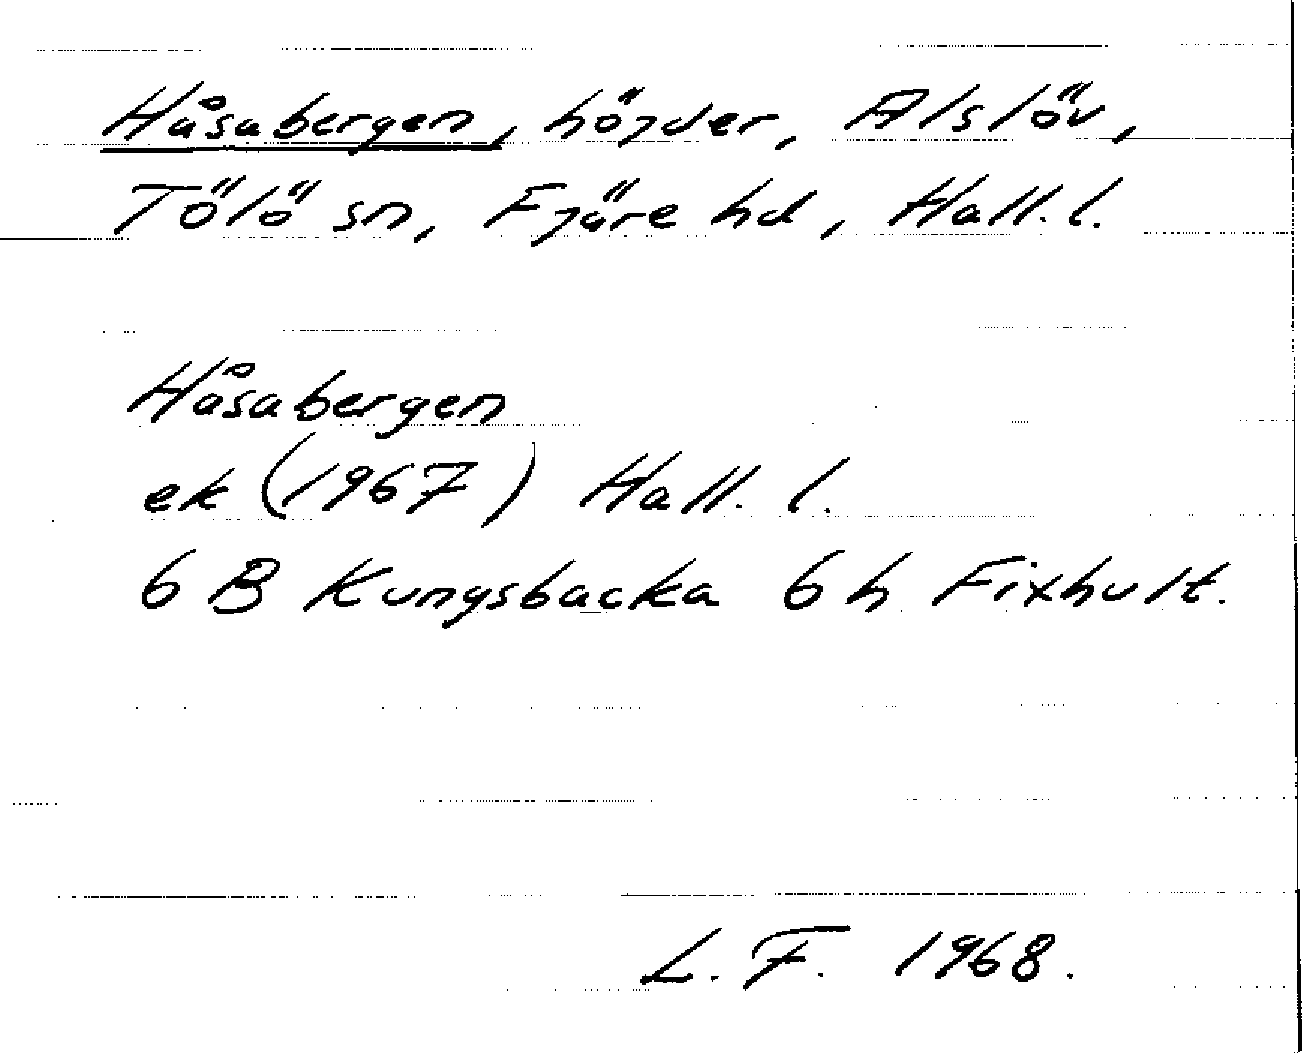 Håsabergen, höjder, Alslöv,
Tölö sn, Fjäre hd, Hall. l.
Håsabergen
ek (1967) Hall. l.
6 B Kungsbacka 6 h Fixhult.
L. F. 1968.